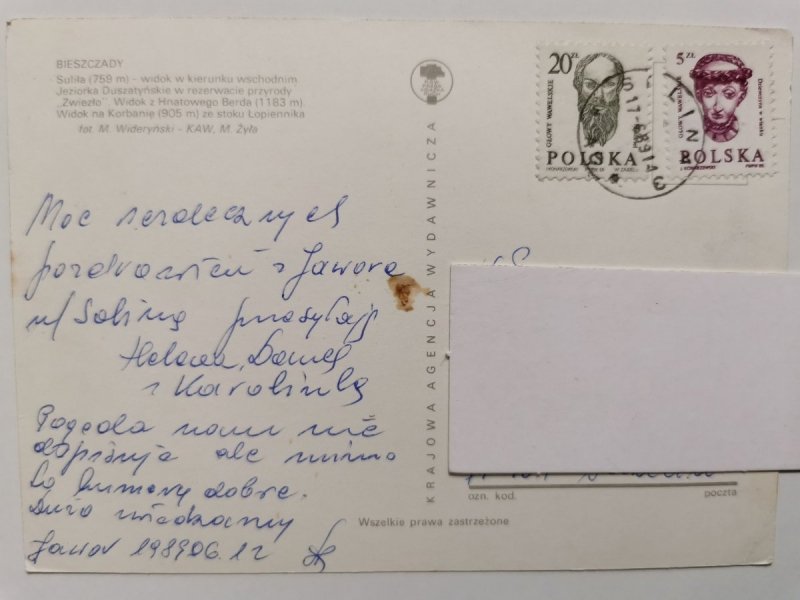 BIESZCZADY
Suliła (759 m) - widok w kierunku wschodnim
Jeziorka Duszatyńskie w rezerwacie przyrody
„Zwiezło". Widok z Hnatowego Berda (1183 m).
Widok na Korbanię (905 m) ze stoku Łopiennika
fot. M. Wideryński - KAW, M. Żyła
Moc serdecznych
pozdrowień z Jawora
n/ Soliną przesyłają
Helena, Daniel
z Karolinką
Pogoda nam nie
dopisuje ale mimo
to humory dobre.
Dużo
Jawor 1989.06.12
KRAJOWA AGENCJA WYDAWNICZA
20 ZŁ
GŁOWY WAWELSKIE
POLSKA
5 ZŁ
GŁOWY WAWELSKIE
Dziewczyna w wianku
POLSKA
ozn. kod.
poczta
Wszelkie prawa zastrzeżone